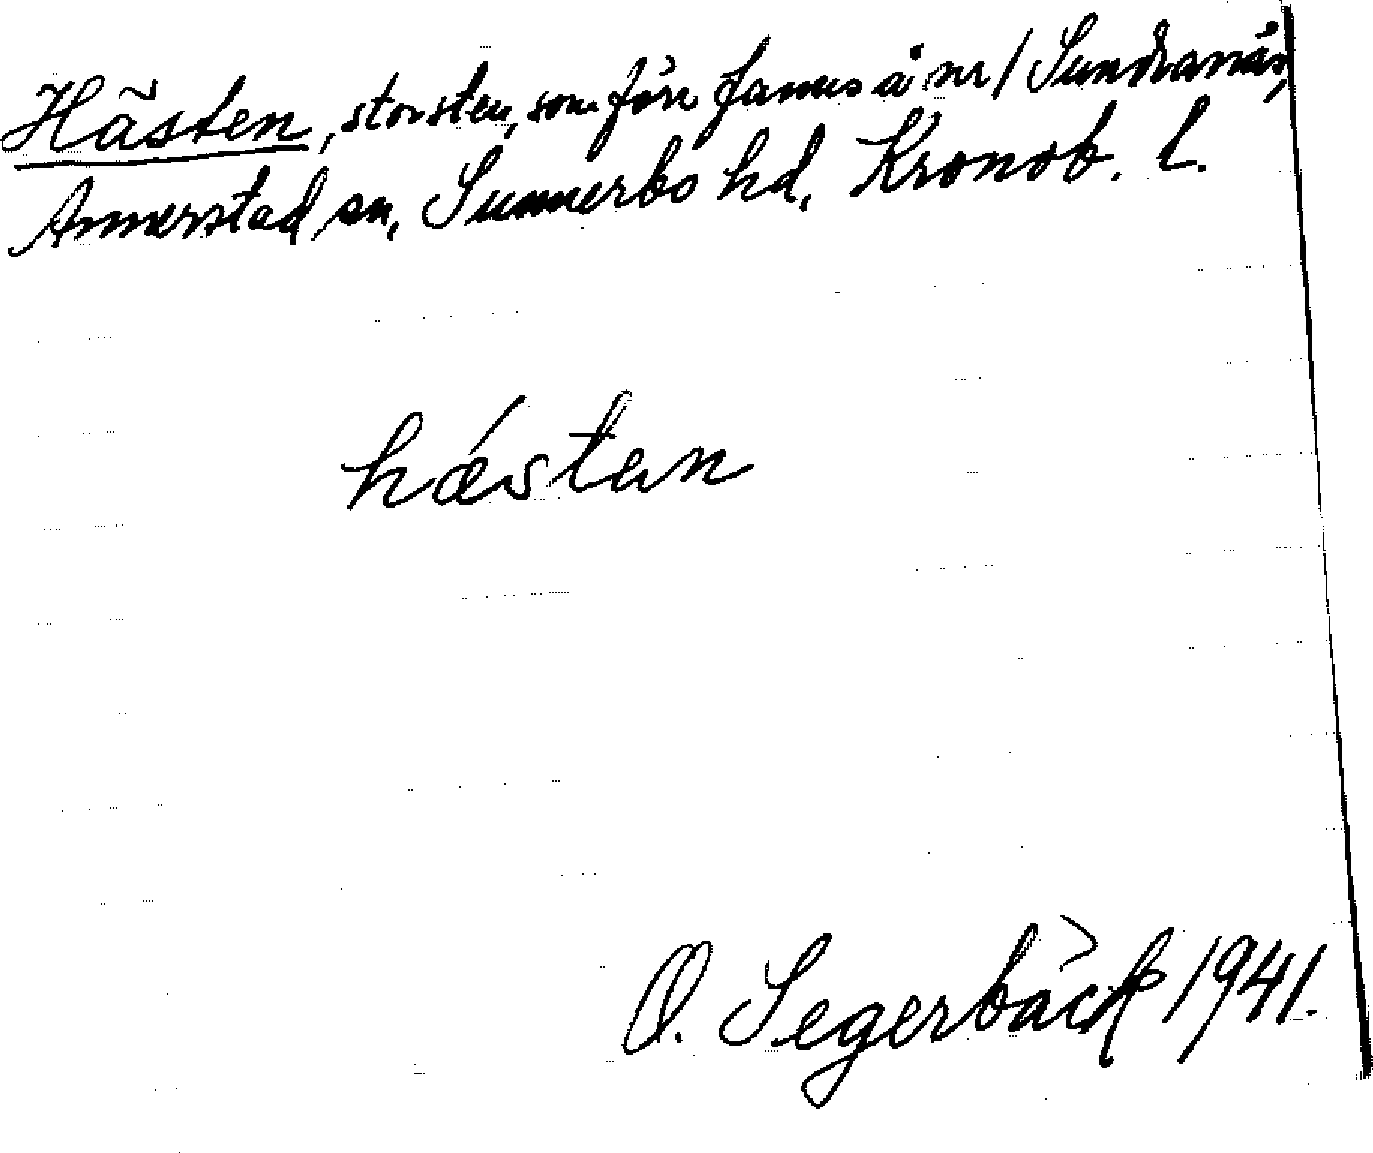 Hästen, storsten, som förr fanns å nr 1 Sundranäs,
Annerstad sn, Sunnerbo hd, Kronob. l.
hǽstan
O. Segerbäck 1941.